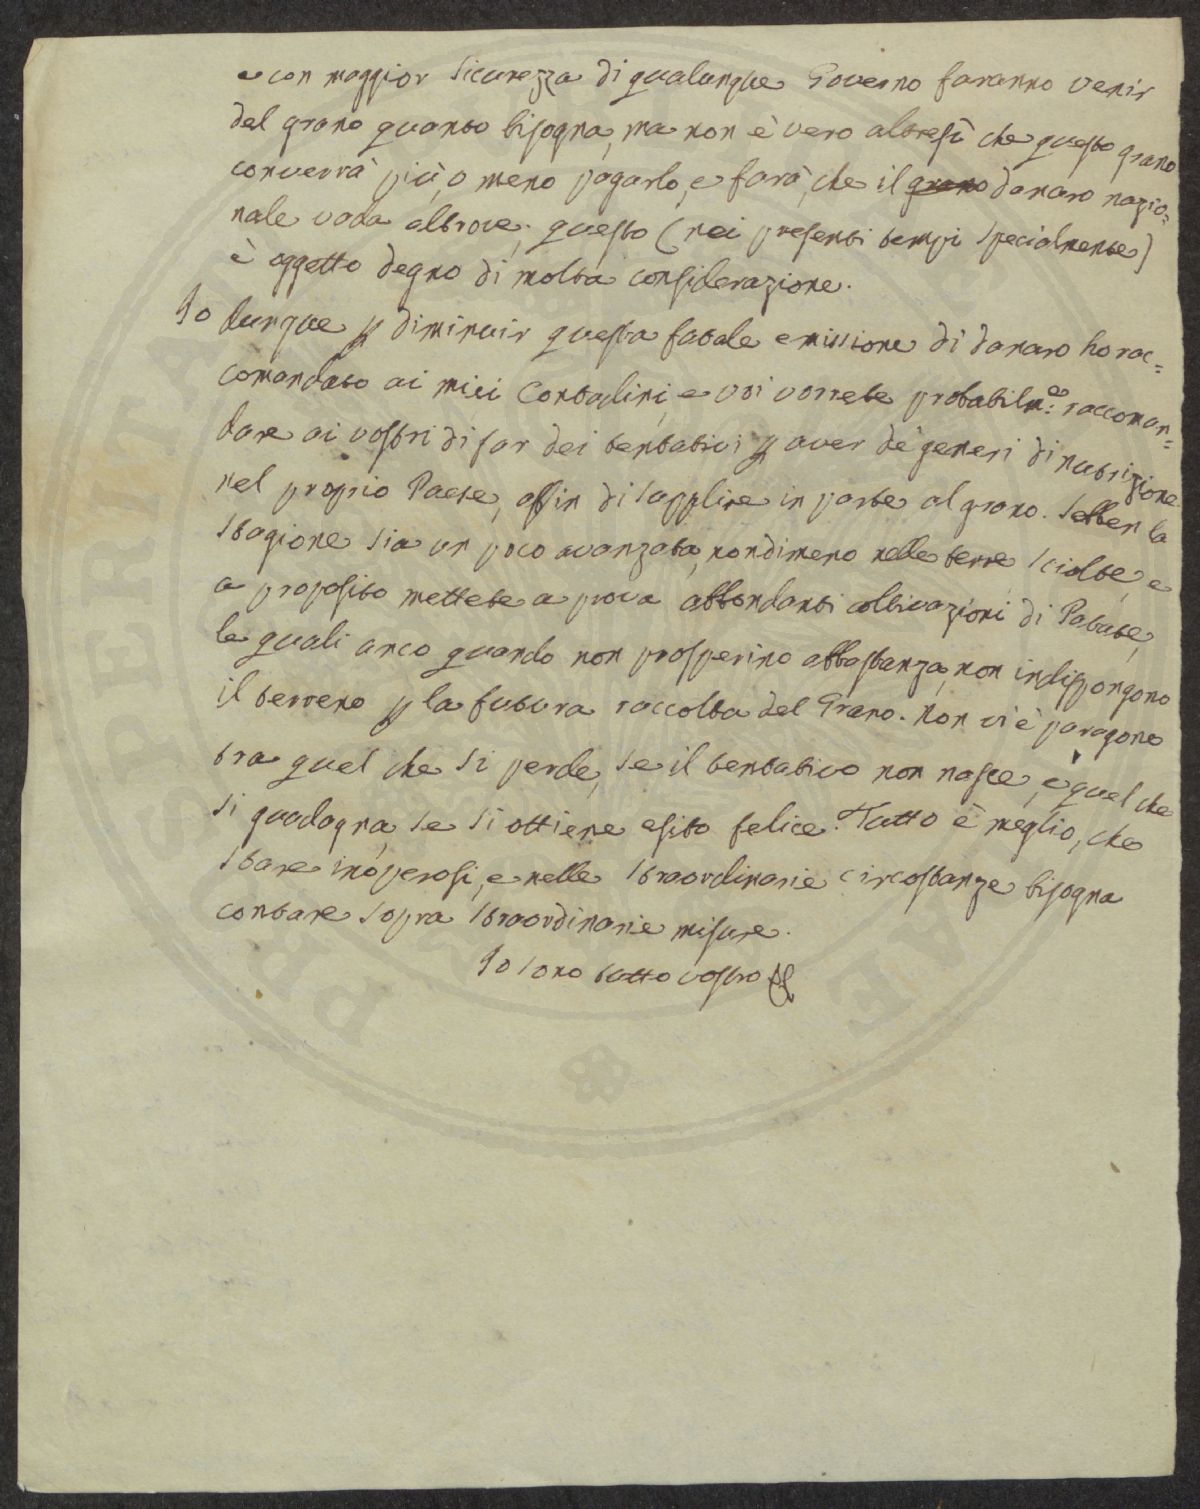 e con maggior sicurezza di qualunque Governo faranno venir
del grano quanto bisogna, ma non è vero altresì che questo grano
converrà più, o meno pagarlo, e farà, che il grano danaro nazio=
nale vada altrove; questo (nei presenti tempi specialmente)
è oggetto degno di molta considerazione.
Io dunque p diminuir questa fatale emissione di danaro ho rac=
comandato ai miei Contadini, e voi vorrete probabilm:e raccoman=
dare ai vostri di far dei tentativi p aver de' generi di nutrizione
nel proprio Paese, affin di supplire in parte al grano. Sebben la
stagione sia un poco avanzata, nondimeno nelle terre sciolte, e
a proposito mettete a prova abbondanti coltivazioni di Patate,
le quali anco quando non prosperino abbastanza, non indispongono
il terreno p la futura raccolta del Grano. Non vi è paragone
tra quel che si perde, se il tentativo non nasce, e quel che
si guadagna, se si ottiene esito felice. Tutto è meglio, che
stare inoperosi, e nelle straordinarie circostanze bisogna
contare sopra straordinarie misure.
Io sono tutto vostro